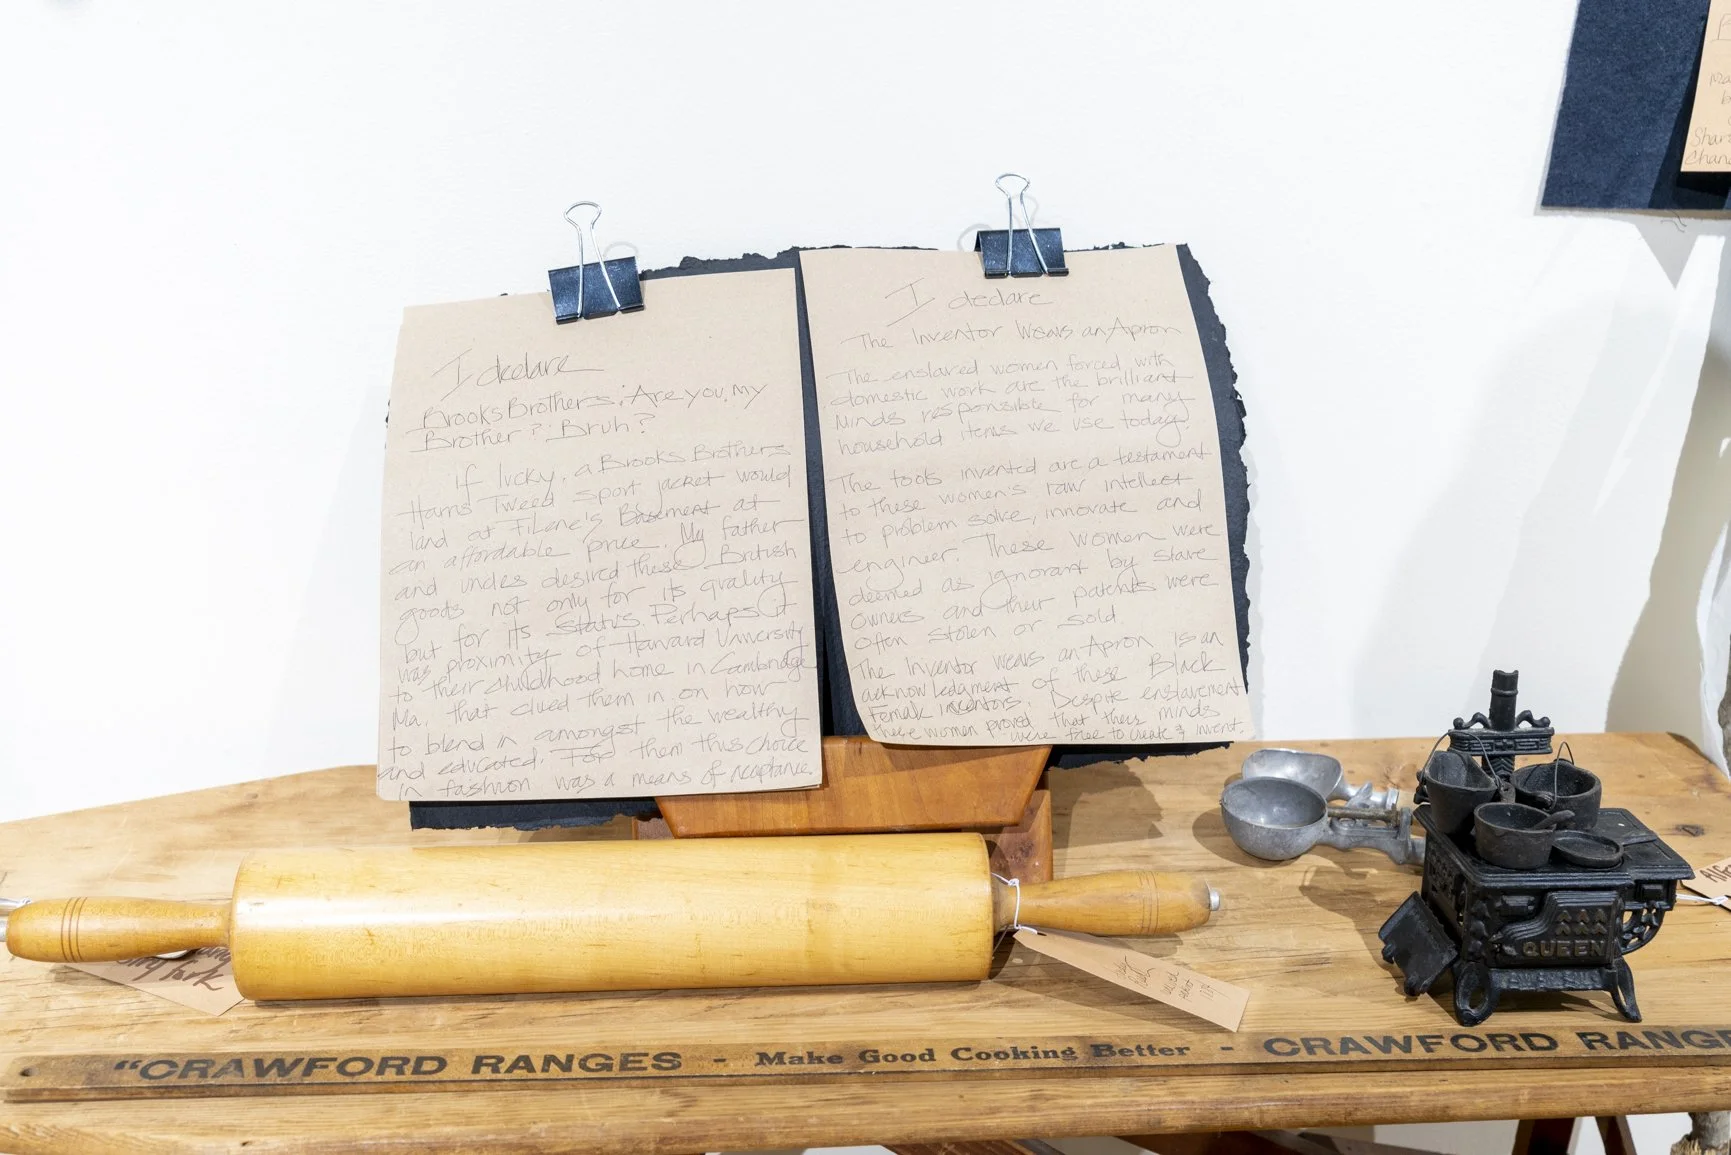 I declare
Brooks Brothers: Are you my
Brother? Bruh?
If lucky, a Brooks Brothers
Harris Tweed sport jacket would
land at Filene's Basement at
an affordable price. My father
and uncles desired these British
goods not only for its quality
but for its status. Perhaps it
was proximity of Harvard University
to their childhood home in Cambridge
Ma, that clued them in on how
to blend in amongst the wealthy
and educated. For them this choice
in fashion was a means of acceptance.
I declare
The Inventor Wears an Apron
The enslaved women forced with
domestic work are the brilliant
Minds responsible for many
household items we use today.
The tools invented are a testament
to these women's raw intellect
to problem solve, innovate and
engineer. These women were
deemed as ignorant by slave
owners and their patents were
often stolen or sold.
The Inventor wears an Apron is an
acknowledgment of these Black
Female inventors. Despite enslavement
these women proved that their minds
were free to create & invent.
Shar
Chan
QUEEN
"CRAWFORD RANGES - Make Good Cooking Better - CRAWFORD RANGE